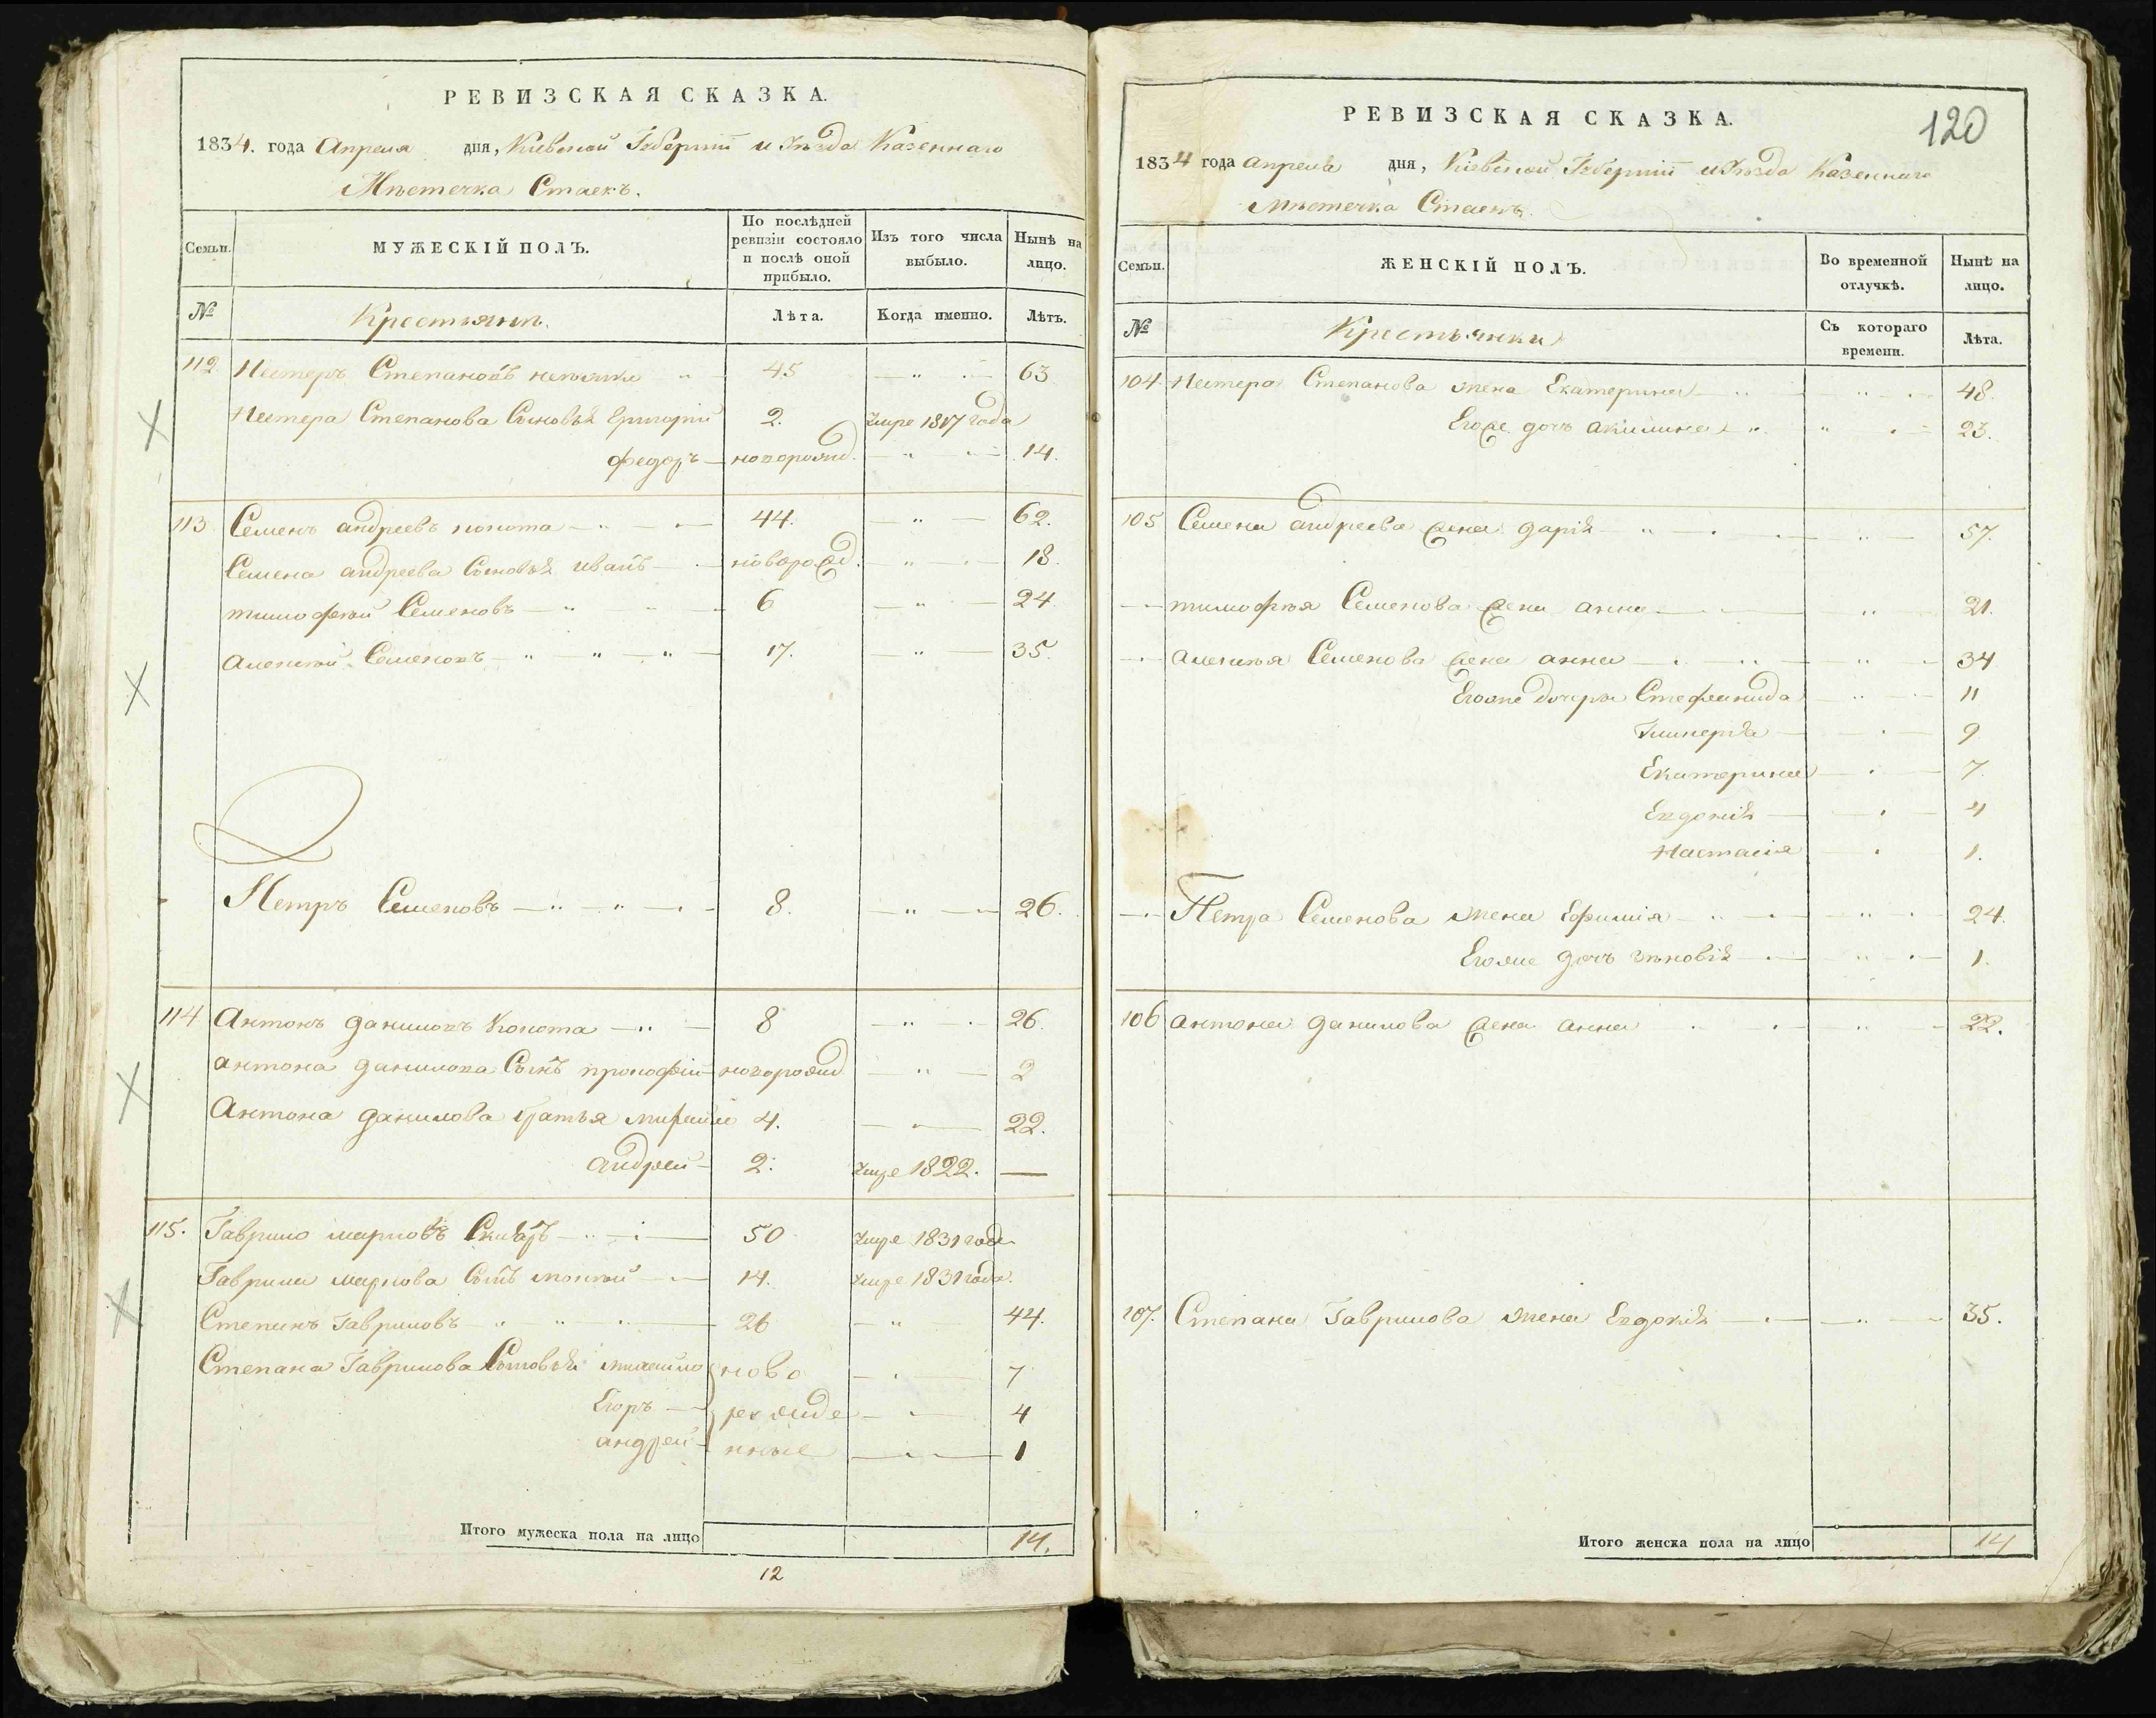 РЕВИЗСКАЯ СКАЗКА.
1834. года Апреля дня, Киевской Губернiи и уѣзда Казеннаго
Мѣстечка Стаекъ.
Семьи.
МУЖЕСКІЙ ПОЛЪ.
По послѣдней ревизіи состояло и послѣ оной прибыло.
Изъ того числа выбыло.
Нынѣ на лицо.
№
Крестьяне.
Лѣта.
Когда именно.
Лѣтъ.
112 Нестеръ Степановъ 45 63
Нестера Степанова Сыновья Григорiй 2. умре 1817 года
Федоръ новорожд. 14.
113 Семенъ андреевъ копота 44. 62.
Семена андреева Сыновья иванъ новорожд. 18.
тимофѣй Семеновъ 6 24
алексѣй Семеновъ 17. 35.
Петръ Семеновъ 8. 26.
114 Антонъ даниловъ Копота 8 26.
антона данилова Сынъ прокофiй новорожд 2
Антона данилова братья 4. 22.
андрей 2. умре 1822. —
115. Гаврило марковъ 50 умре 1831 года
Гаврила маркова Сынъ мокѣй 14. умре 1831 года.
Степанъ Гавриловъ 26 44.
Степана Гаврилова Сыновья михайло ново 7
Егоръ рожде 4
андрей нные 1
Итого мужеска пола на лицо 14.
12
120
РЕВИЗСКАЯ СКАЗКА.
1834 года апреля дня, Кiевской Губернiи и уѣзда Казеннаго
Мѣстечка Стаекъ.
Семьи.
ЖЕНСКІЙ ПОЛЪ.
Во временной отлучкѣ.
Нынѣ на лицо.
№
Крестьянки
Съ котораго времени.
Лѣта.
104. Нестера Степанова жена Екатерина 48.
Егоже дочь акилина 23.
105 Семена андреева жена дарiя 57.
тимофѣя Семенова жена анна 21.
алексѣя Семенова жена анна 34
Егоже дочери Стефанида 11
Гликерiя 9
Екатерина 7.
Евдокiя 4
Настасiя 1.
Петра Семенова жена Ефимiя 24.
Егоже дочь зѣновiя 1.
106 антона данилова жена анна 22.
107. Степана Гаврилова жена Евдокiя 35.
Итого женска пола на лицо 14